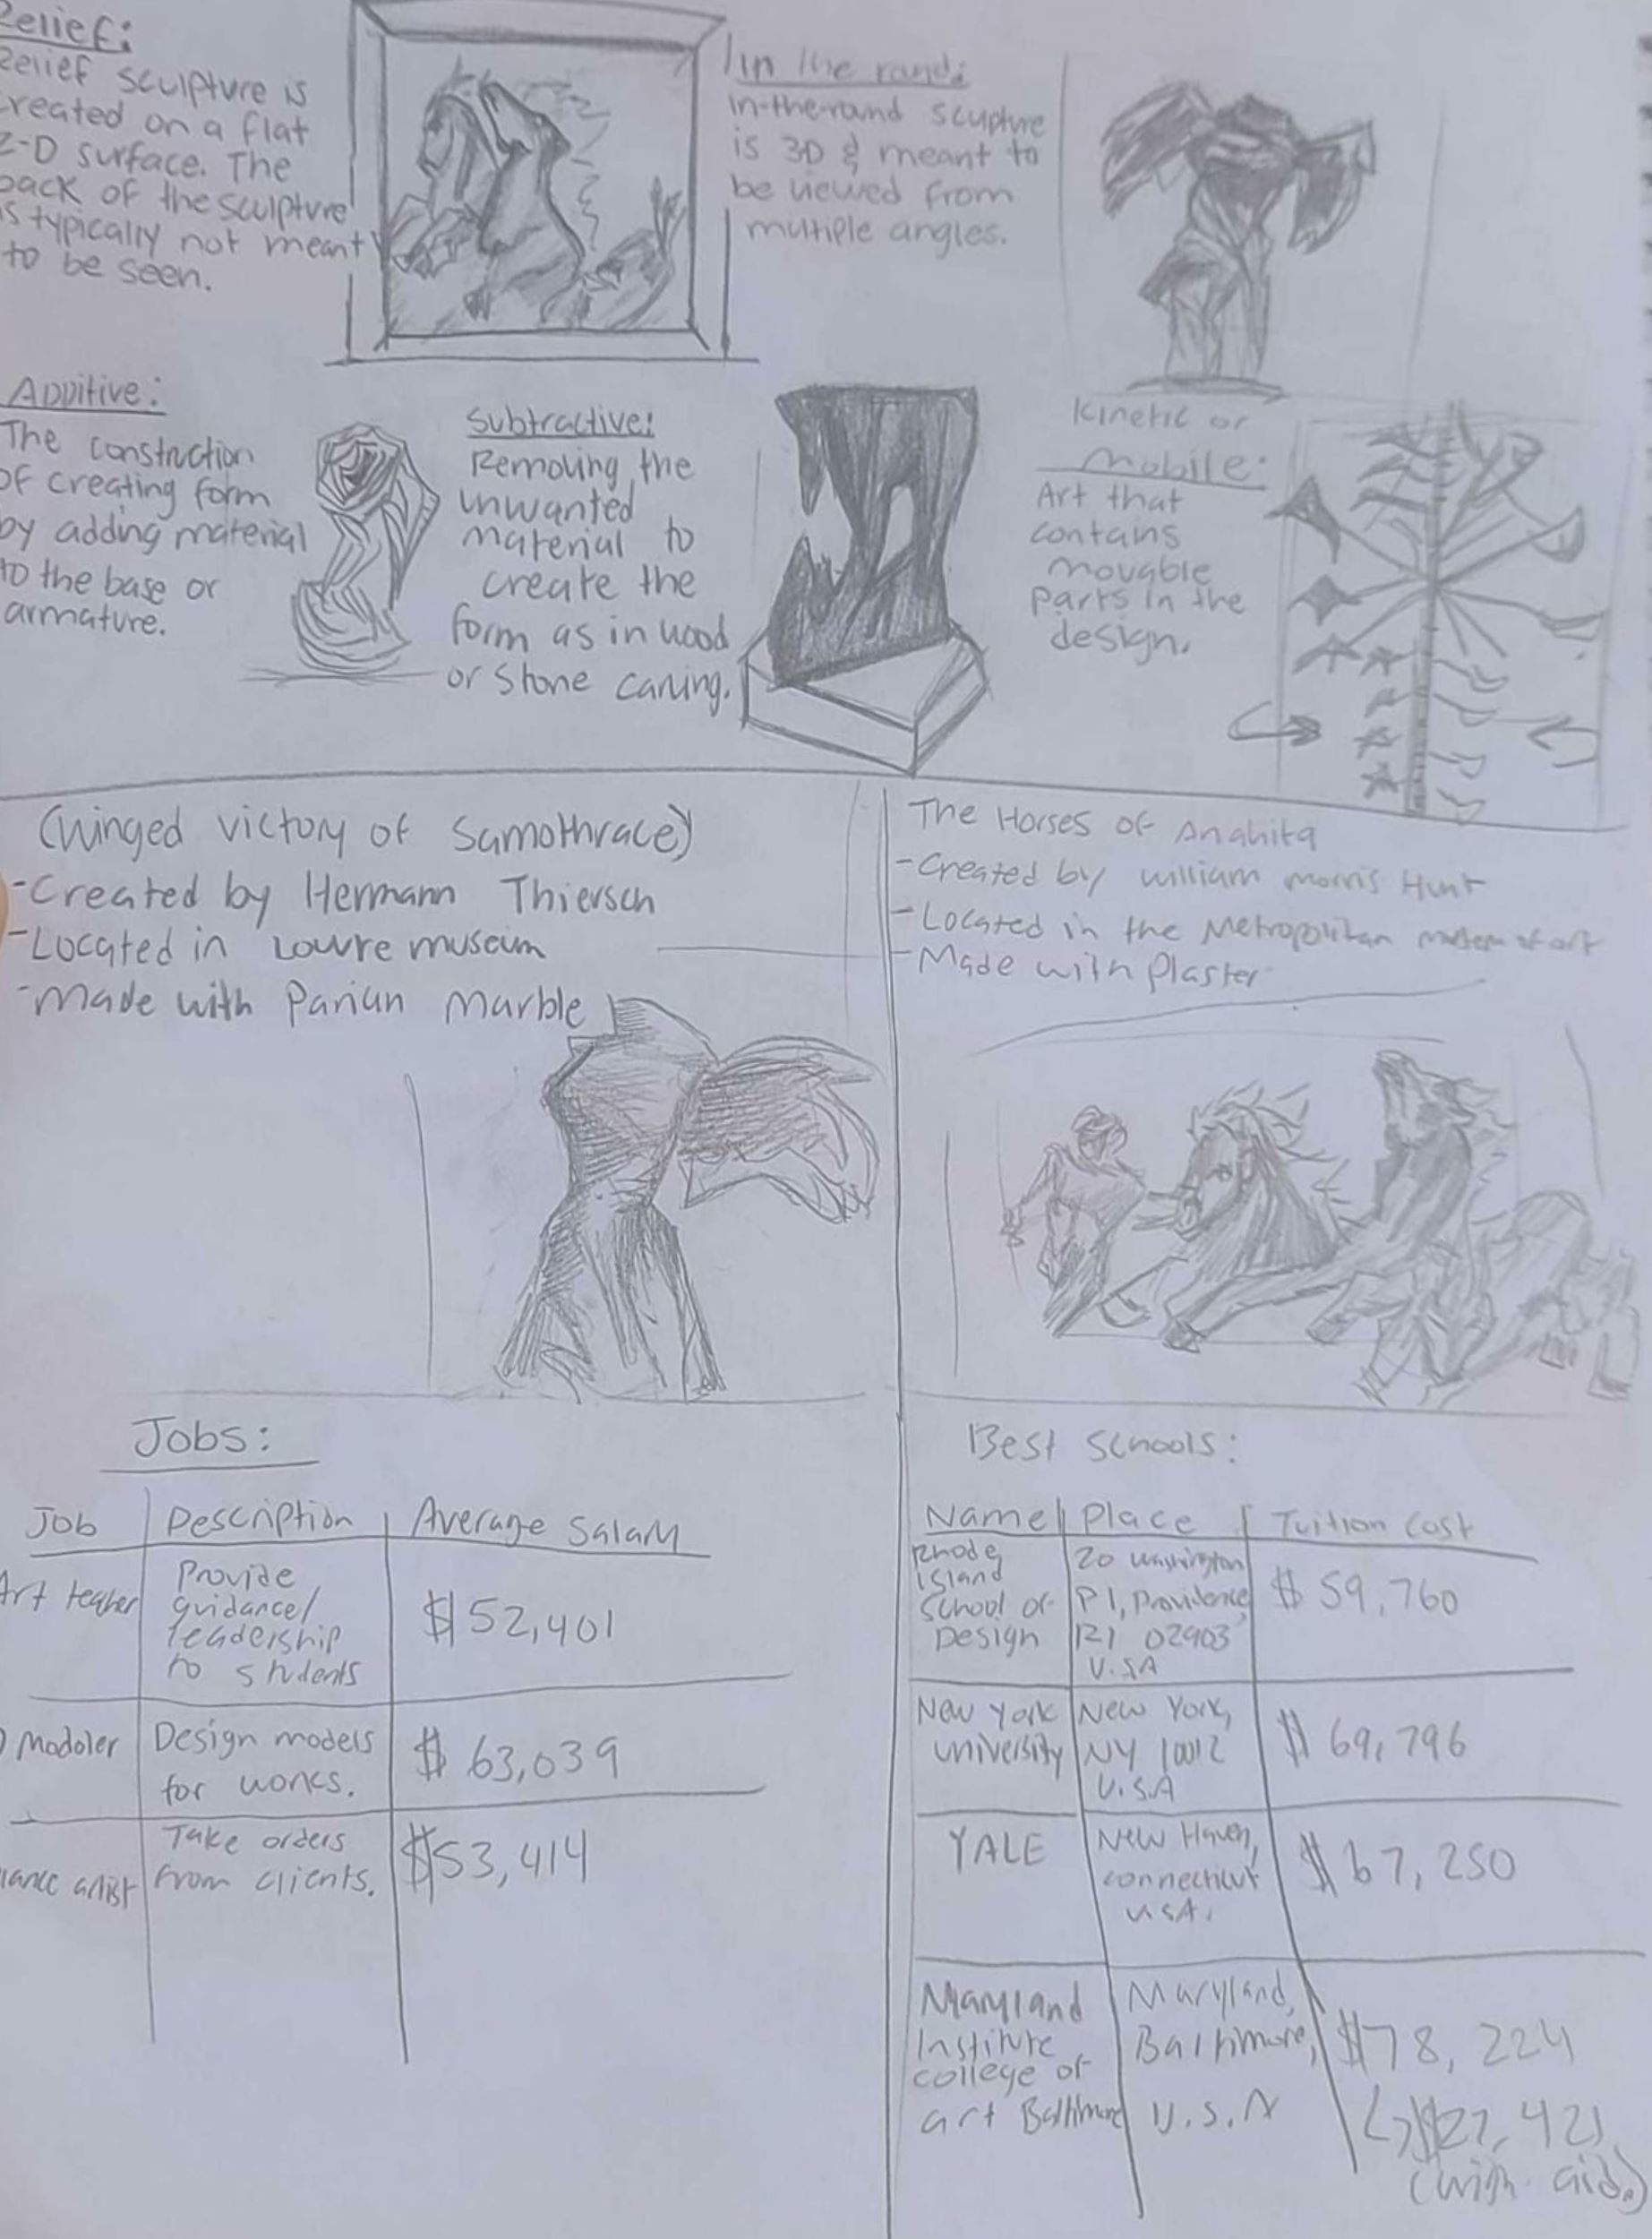 Relief:
Relief sculpture is
created on a flat
2-D surface. The
back of the sculpture
is typically not meant
to be seen.
In the round:
in-the-round sculpture
is 3D & meant to
be viewed from
multiple angles.
Additive:
The construction
of creating form
by adding material
to the base or
armature.
Subtractive:
Removing the
unwanted
material to
create the
form as in wood
or stone carving.
Kinetic or
mobile:
Art that
contains
movable
parts in the
design.
(Winged victory of Samothrace)
-Created by Hermann Thiersch
-Located in Louvre museum
-made with Parian Marble
The Horses of Anahita
-Created by William Morris Hunt
-Located in the Metropolitan museum of art
-Made with Plaster
Jobs:
Job Description Average Salary
Art teacher
Provide
guidance/
leadership
to students
$52,401
modoler
Design models
for works.
$63,039
artist
Take orders
from clients.
$53,414
Best Schools:
Name Place Tuition Cost
Rhode
Island
School of
Design
20 Washington
Pl, Providence,
RI 02903
U.S.A
$59,760
New York
University
New York,
NY 10012
U.S.A
$69,796
YALE
New Haven,
Connecticut
USA.
$67,250
Maryland
Institute
college of
art Baltimore
Maryland,
Baltimore,
U.S.A
$78,224
↳$27,421
(with aid.)